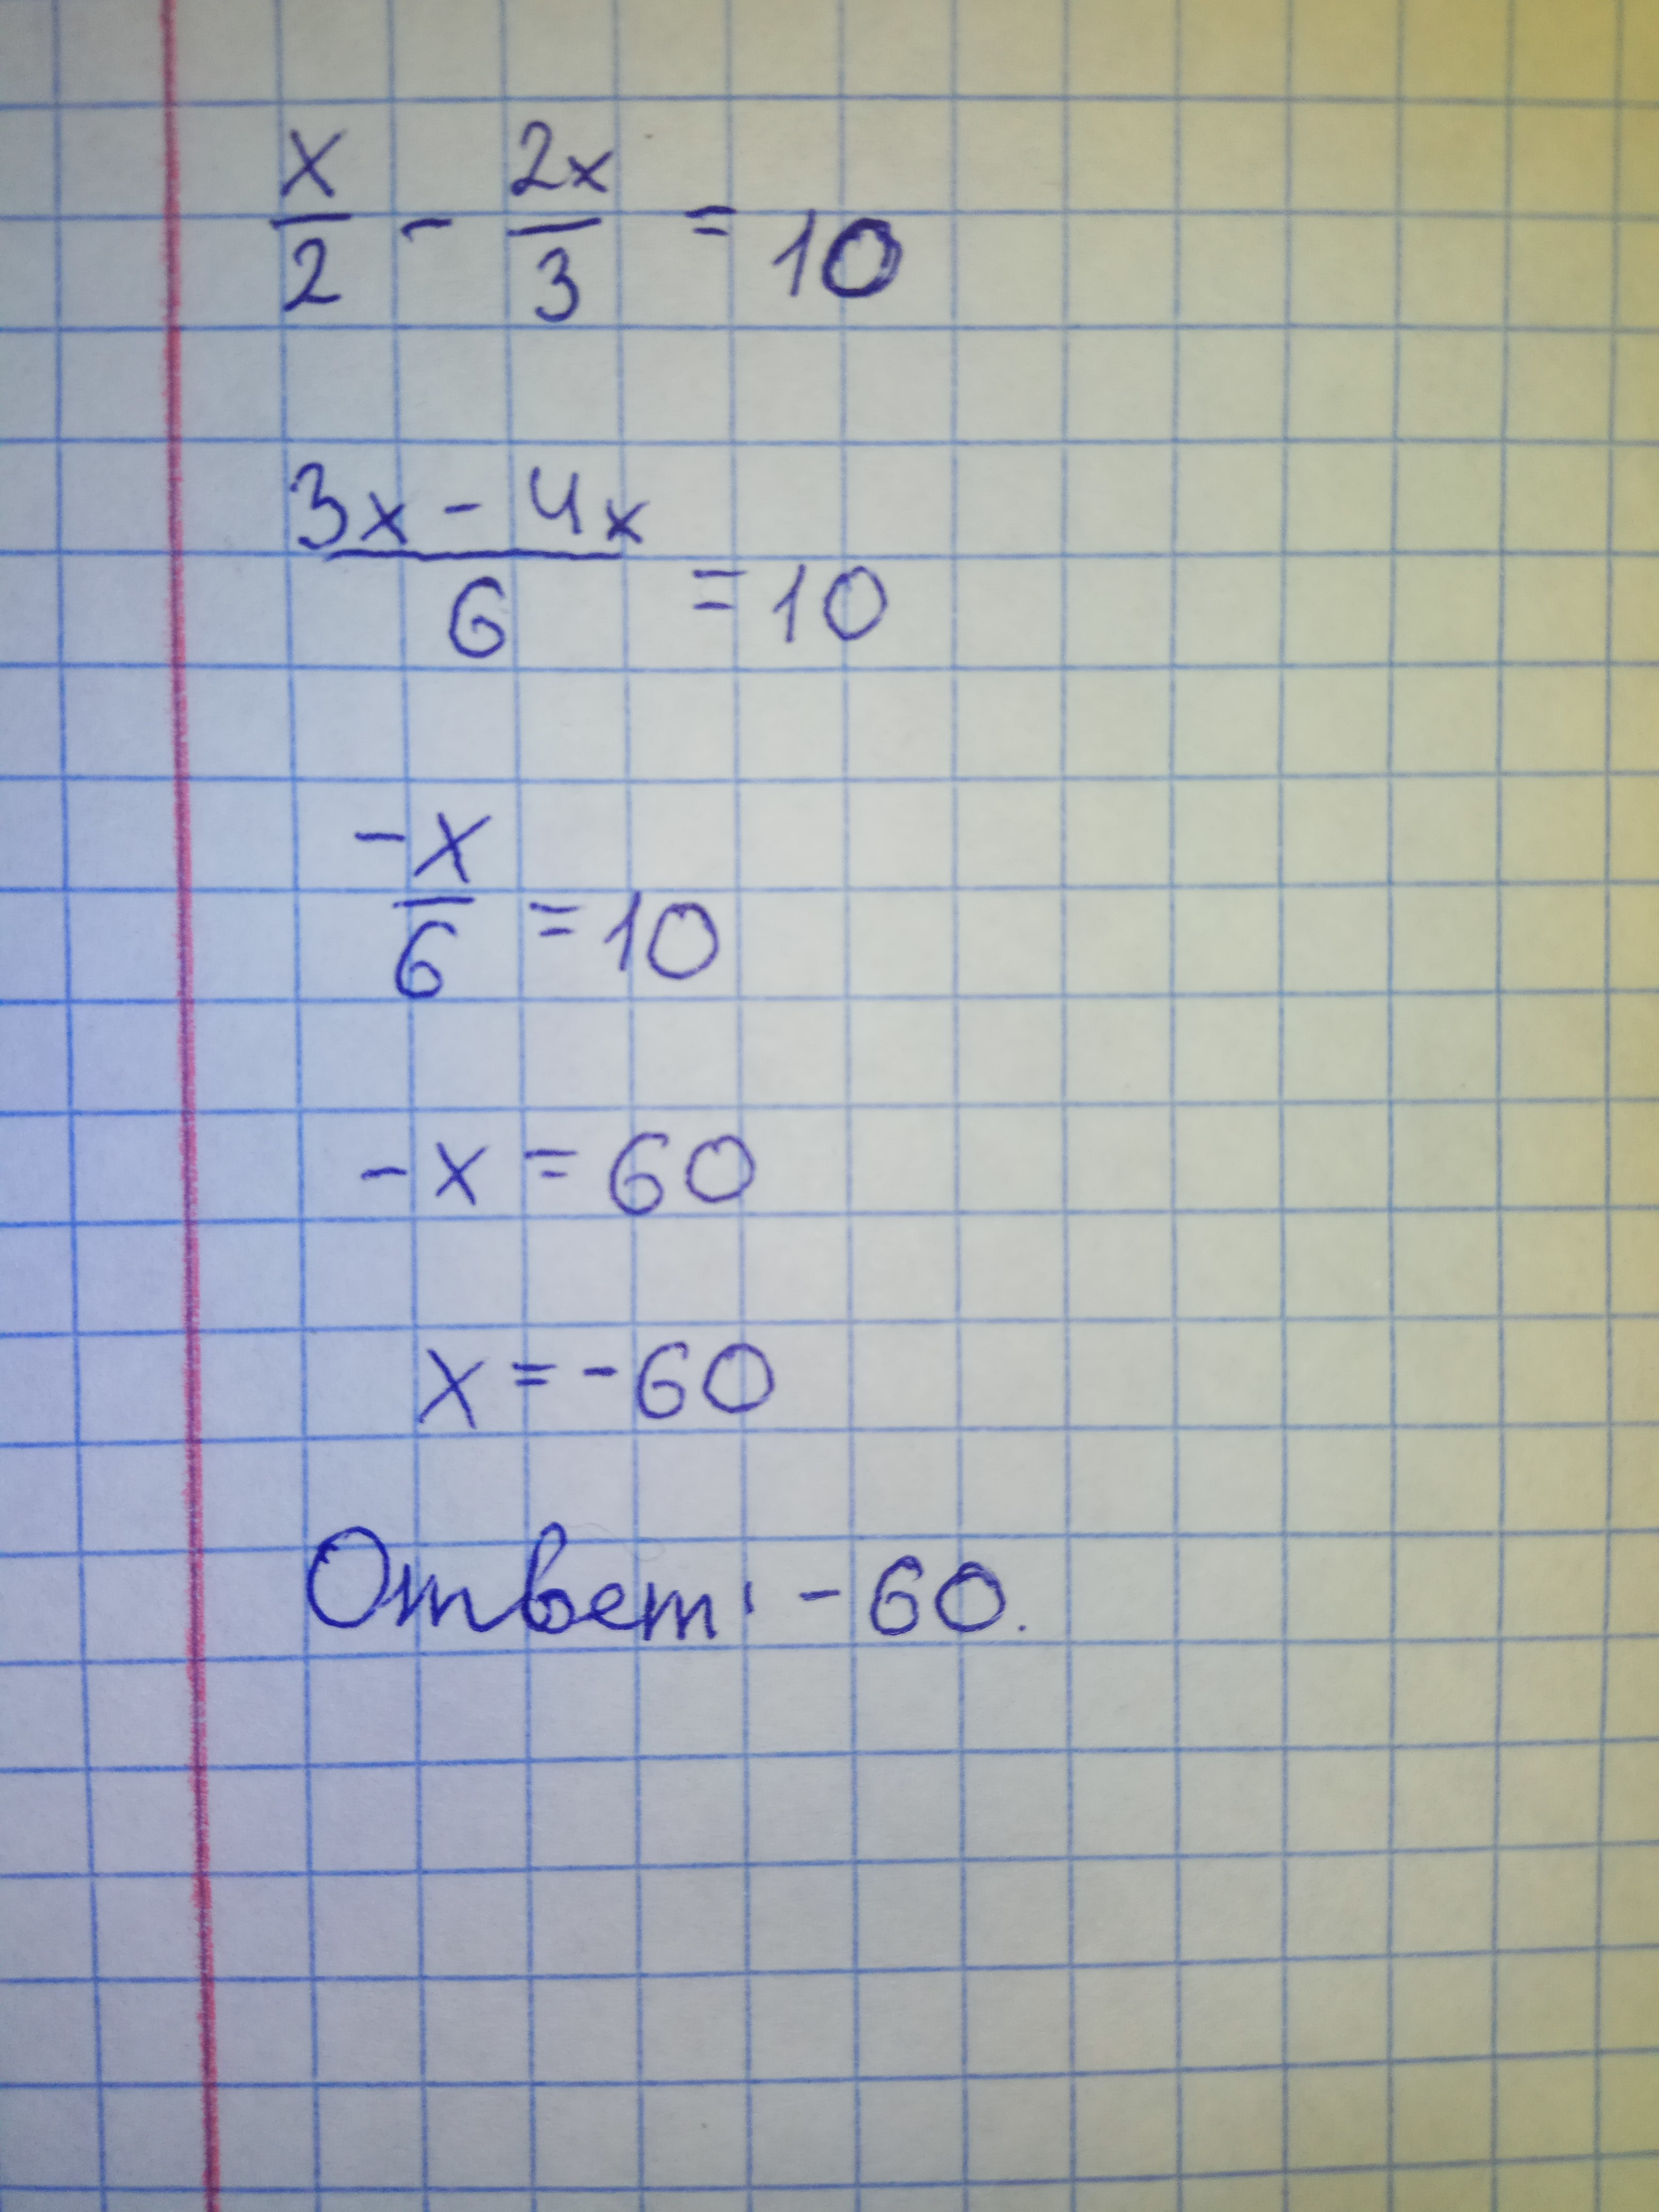 x/2 - 2x/3 = 10
3x - 4x/6 = 10
-x/6 = 10
-x = 60
x = -60
Ответ: -60.